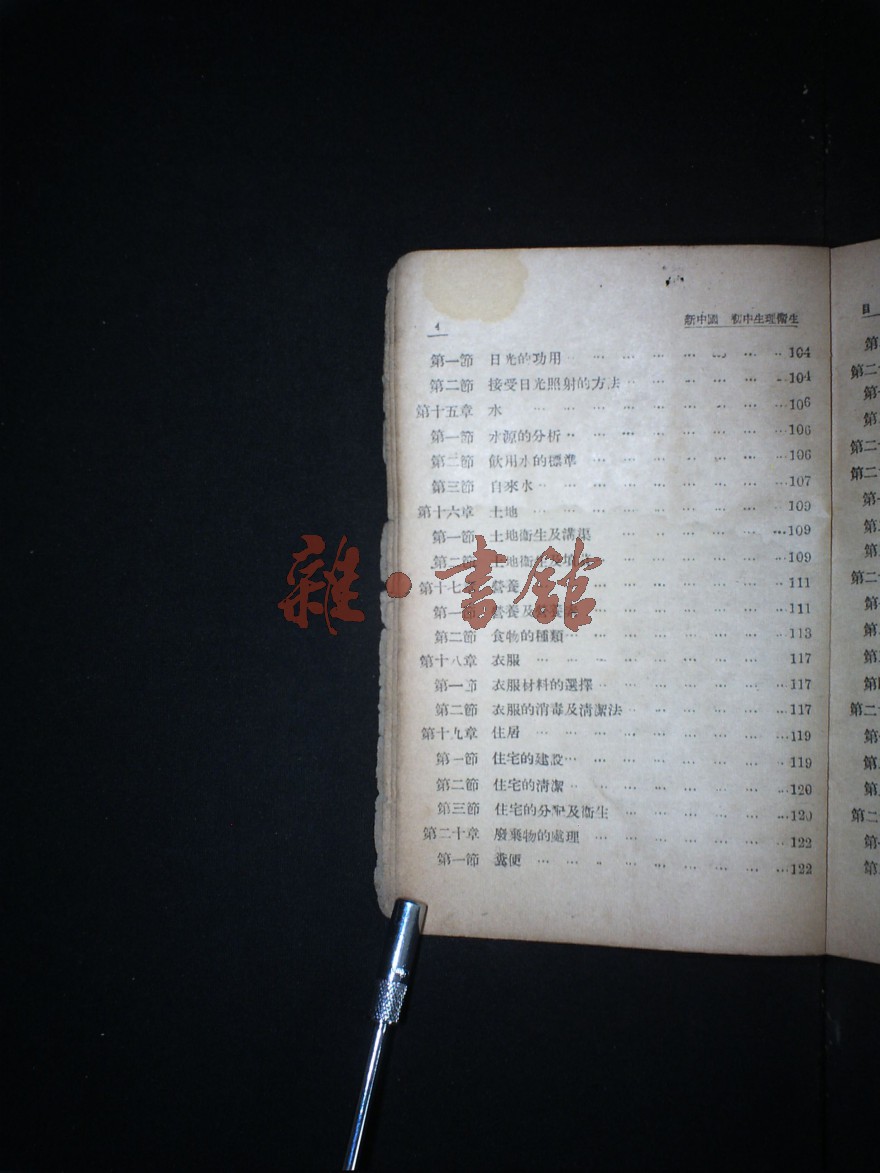 4
新中國 初中生理衞生
第一節 日光的功用 ... 104
第二節 接受日光照射的方法 ... 104
第十五章 水 ... 106
第一節 水源的分析 ... 106
第二節 飲用水的標準 ... 106
第三節 自來水 ... 107
第十六章 土地 ... 109
第一節 土地衞生及溝渠 ... 109
第二節 土地衞生及 ... 109
第十七章 營養 ... 111
第一節 營養及 ... 111
第二節 食物的種類 ... 113
第十八章 衣服 ... 117
第一節 衣服材料的選擇 ... 117
第二節 衣服的消毒及清潔法 ... 117
第十九章 住居 ... 119
第一節 住宅的建設 ... 119
第二節 住宅的清潔 ... 120
第三節 住宅的分配及衞生 ... 120
第二十章 廢棄物的處理 ... 122
第一節 糞便 ... 122
雜·書館
目